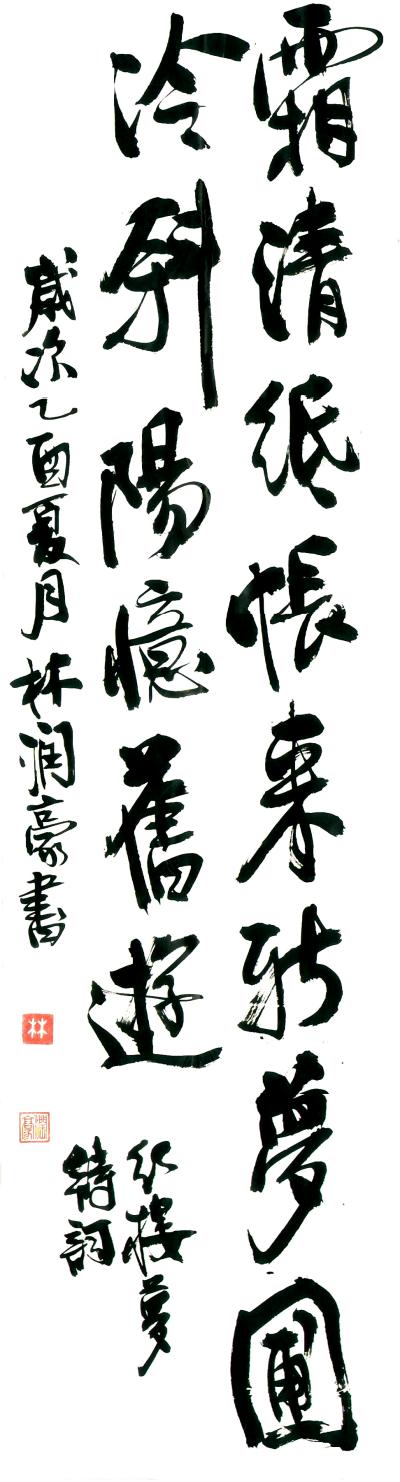 霜清紙帳来新夢圃
冷斜陽憶舊遊
紅樓夢
詩詞
歲次乙酉夏月林潤豪書
林
潤豪